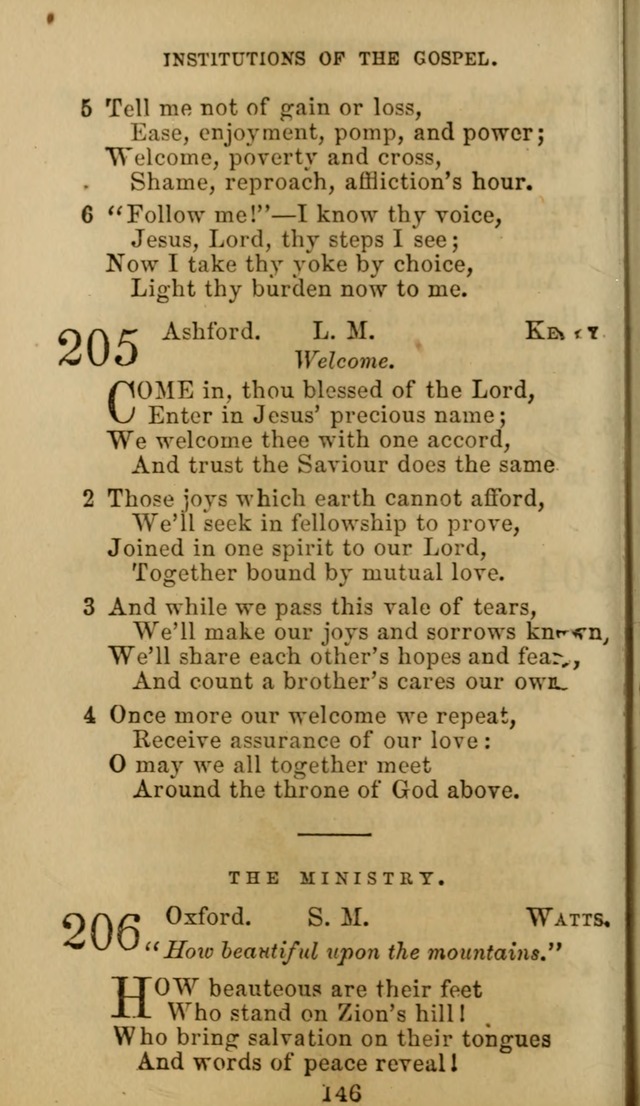 INSTITUTIONS OF THE GOSPEL.
5 Tell me not of gain or loss,
Ease, enjoyment, pomp, and power;
Welcome, poverty and cross,
Shame, reproach, affliction's hour.
6 "Follow me!"—I know thy voice,
Jesus, Lord, thy steps I see;
Now I take thy yoke by choice,
Light thy burden now to me.
205 Ashford. L. M.
Welcome.
COME in, thou blessed of the Lord,
Enter in Jesus' precious name;
We welcome thee with one accord,
And trust the Saviour does the same
2 Those joys which earth cannot afford,
We'll seek in fellowship to prove,
Joined in one spirit to our Lord,
Together bound by mutual love.
3 And while we pass this vale of tears,
We'll make our joys and sorrows known,
We'll share each other's hopes and fears,
And count a brother's cares our own.
4 Once more our welcome we repeat,
Receive assurance of our love:
O may we all together meet
Around the throne of God above.
THE MINISTRY.
206 Oxford. S. M. WATTS.
"How beautiful upon the mountains."
HOW beauteous are their feet
Who stand on Zion's hill!
Who bring salvation on their tongues
And words of peace reveal!
146